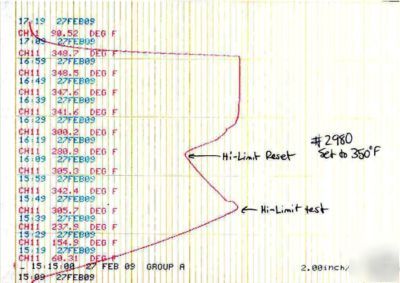 17:19 27FEB09
CH11 90.52 DEG F
17:09 27FEB09
CH11 348.7 DEG F
16:59 27FEB09
CH11 348.5 DEG F
16:49 27FEB09
CH11 347.6 DEG F
16:39 27FEB09
CH11 341.6 DEG F
16:29 27FEB09
CH11 300.2 DEG F
16:19 27FEB09
CH11 280.9 DEG F
16:09 27FEB09
CH11 305.3 DEG F
15:59 27FEB09
CH11 342.4 DEG F
15:49 27FEB09
CH11 305.7 DEG F
15:39 27FEB09
CH11 237.9 DEG F
15:29 27FEB09
CH11 154.9 DEG F
15:19 27FEB09
CH11 60.31 DEG F
15:15:00 27 FEB 09 GROUP A 2.00inch/
15:09 27FEB09
#2980
Set to 350°F
Hi-Limit Reset
Hi-Limit test